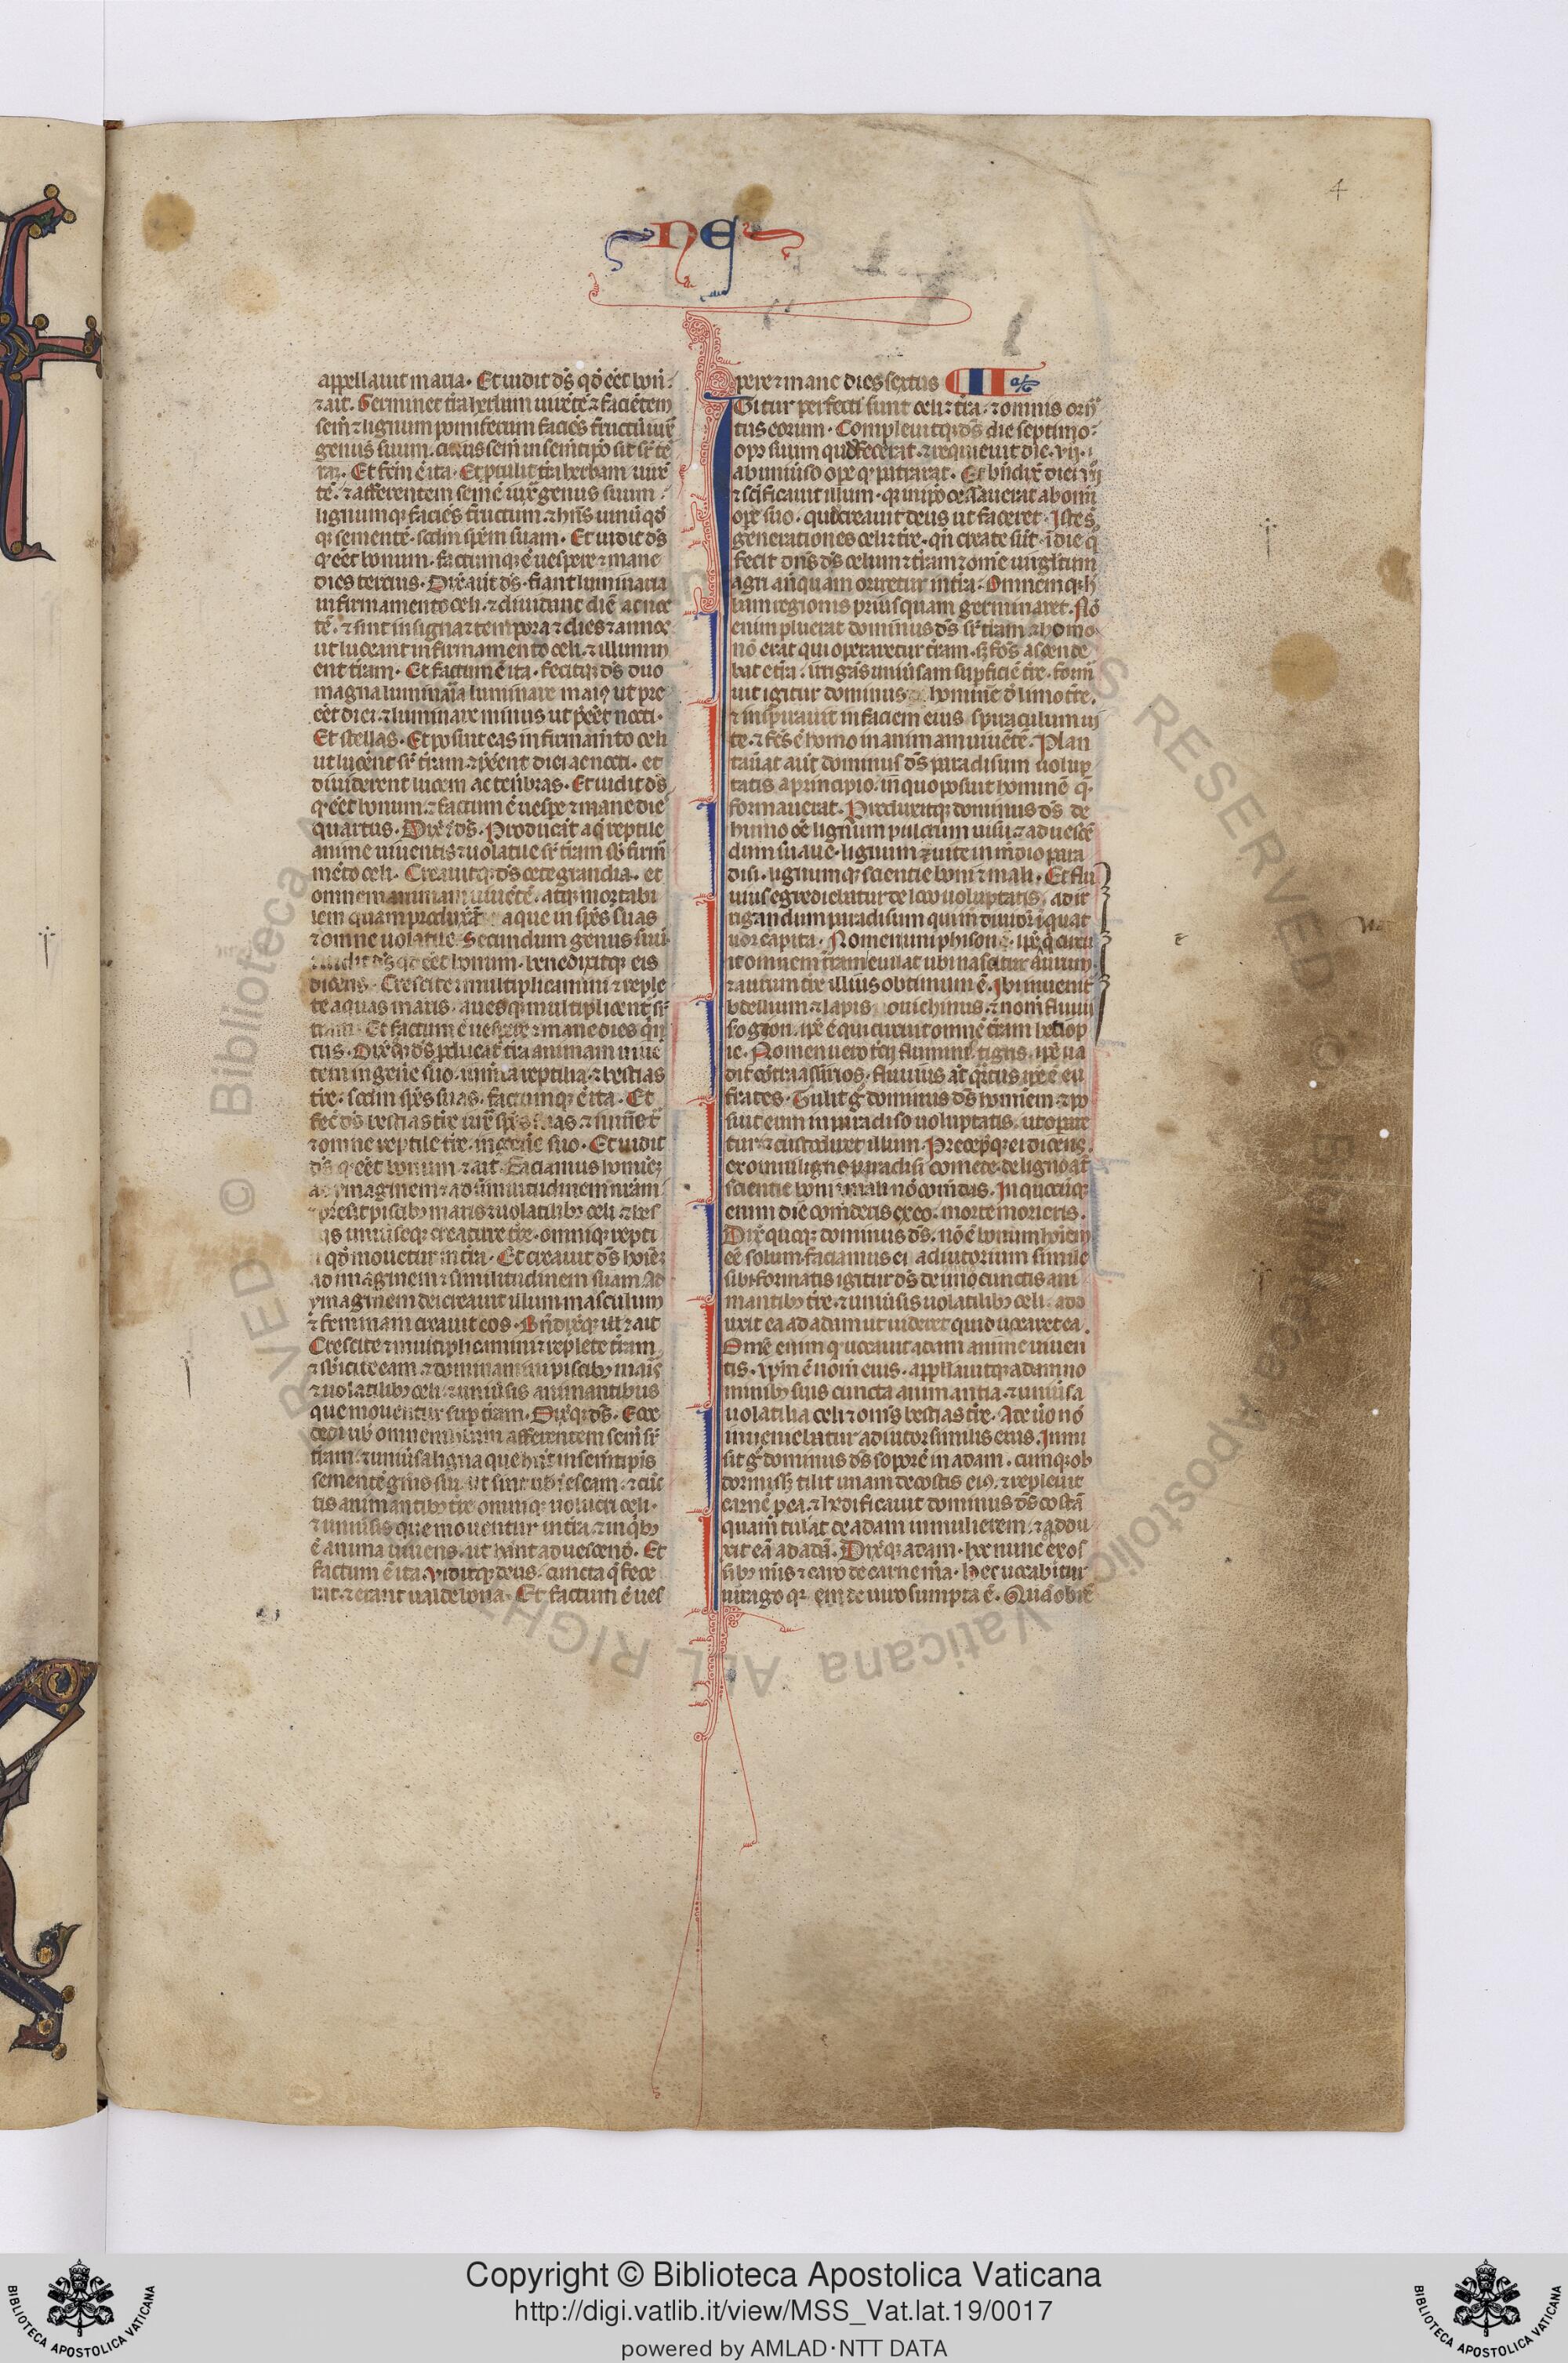 NE
4
appellauit maria. Et uidit ds̄ qđ eēt bonū.
⁊ ait. Germinet t̄ra herbam uirētē ⁊ faciētem
sem̄ ⁊ lignum pomiferum faciēs fructū iux̄
genus suum. cuius sem̄ in semetip̄o sit sr̄ ter
ram. Et fc̄m ē ita. Et ꝓtulit t̄ra herbam uirē
tē. ⁊ afferentem semē iux̄ genus suum.
lignumqꝫ faciēs fructum. ⁊ hn̄s unūqđ
qꝫ sementē. scđm spēm suam. Et uidit ds̄
qꝫ eēt bonum. factumqꝫ ē uespere ⁊ mane
dies tercius. Dix̄ aūt ds̄. fiant luminaria
in firmamento celi. ⁊ diuidant diē ac noc
tē. ⁊ sint in signa ⁊ tempora ⁊ dies ⁊ annos
ut luceant in firmamento celi. ⁊ illumin
ent t̄ram. Et factum ē ita. fecitqꝫ ds̄ duo
magna luminaria luminare maiꝰ ut pre
eēt diei. ⁊ luminare minus ut p̄eēt nocti.
Et stellas. Et posuit eas in firmam̄to celi
ut lucēnt sr̄ t̄ram. ⁊ p̄ēent diei ac nocti. et
diuiderent lucem ac tenebras. Et uidit ds̄
qꝫ eēt bonum. ⁊ factum ē uesꝑe ⁊ mane die
quartus. Dix̄ ⁊ ds̄. Producāt aq̄ reptile
anime uiuentis ⁊ uolatile sr̄ t̄ram sb̄ firm̄
mēto celi. Creauitqꝫ ds̄ cete grandia. et
omnem animam uiuētē. atqꝫ motabi
lem quam produxāt aque in spēs suas
⁊ omne uolatile. Secundum genus suū.
uidit ds̄ qđ eēt bonum. benedixitqꝫ eis
dicens. Crescite ⁊ multiplicamini ⁊ reple
te aquas maris. auesqꝫ multiplicent̄ sr̄
t̄ram. Et factum ē uespere ⁊ mane dies qn̄
tus. Dix̄ qꝫ ds̄ ꝓducat t̄ra animam uiuē
tem in geñe suo. iumēta reptilia. ⁊ bestias
t̄re. scđm spēs suas. factumqꝫ ē ita. Et
fec̄ ds̄ bestias t̄re iux̄ spēs suas. ⁊ iumēt̄
⁊ omne reptile t̄re. in geñe suo. Et uidit
ds̄ qꝫ eēt bonum. ⁊ ait. Faciamus homiēꝫ
ad ymaginem ⁊ ad similitudinem nr̄am
⁊ presit piscibꝫ maris ⁊ uolatilibꝫ celi ⁊ bes
tiis uniūseqꝫ creature t̄re. omniqꝫ repti
li qđ mouetur in t̄ra. Et creauit ds̄ hoiēꝫ
ad imaginem ⁊ similitudinem suam. Ad
ymaginem dei creauit illum. masculum
⁊ feminam creauit eos. Bn̄dix̄qꝫ ill̄ ⁊ ait
Crescite ⁊ multiplicamini ⁊ replete t̄ram
⁊ sb̄icite eam. ⁊ dominamini piscibꝫ maris
⁊ uolatilibꝫ celi. ⁊ uniūsis animantibus
que mouentur suꝑ t̄ram. Dix̄qꝫ ds̄. Ecce
dedi uob̄ omnem herbam afferentem sem̄ sr̄
t̄ram. ⁊ uniūsa ligna que hn̄t in semetip̄is
sementē gn̄is sui. ut sint uob̄ ī escam. ⁊ cūc
tis animantibꝫ t̄re. omniqꝫ uolucri celi.
⁊ uniūsis que mouentur in t̄ra. ⁊ in qꝫbꝫ
ē anima uiuens. ut hn̄nt ad uescendū. Et
factum ē ita. Viditqꝫ deus. cuncta q̄ fece
rat. ⁊ erant ualde bona. Et factum ē ues
pere ⁊ mane dies sextus
IGitur perfecti sunt celi ⁊ t̄ra. ⁊ omnis orn̄
tus eorum. Compleuitqꝫ ds̄ die septimo.
opꝰ suum quod fecerat. ⁊ requieuit die. vij.
ab uniūso oꝑe qꝫ patrarat. Et bn̄dix̄ diei vij
⁊ sc̄ificauit illum. qꝫ in ip̄o cessauerat ab omī
oꝑe suo. quod creauit deus ut faceret. Iste st̄
generationes celi ⁊ t̄re. qn̄ create sūt. ī die q̄
fecit dn̄s ds̄ celum ⁊ t̄ram ⁊ om̄e uirgltum
agri anquam oriretur in t̄ra. Omnemqꝫ h̄
bam regionis priusquam germinaret. Nō
enim pluerat dominus ds̄ sr̄ t̄ram. ⁊ homo
nō erat qui operaretur t̄ram. sꝫ fōs ascende
bat e t̄ra. irrigās uniūsam suꝑficiē t̄re. form̄
uit igitur dominus hominē d̄ limo t̄re.
⁊ inspirauit in faciem eius spiraculum ui
te. ⁊ fc̄s ē homo in animam uiuētē. Plan
tau̇at aūt dominus ds̄ paradisum uolup
tatis a principio. in quo posuit hominē q̄
formauerat. Produxitqꝫ dominus ds̄ de
humo oē lignum pulcrum uisu. ⁊ ad uescē
dum suaue. lignum ⁊ uite in m̄dio para
disi. lignumqꝫ scientie boni ⁊ mali. Et flu
uius egrediebatur de loco uoluptatis. ad ir
rigandum paradisum qui īn diuidit̄ ī quat
uor capita. Nomen uni phison. ip̄e q̄ circu
it omnem t̄ram euilat ubi nascitur aurum.
⁊ aurum t̄re illius obtimum ē. Ibi inuenit̄
bdellium ⁊ lapis onichinus. ⁊ nom̄ fluuii
s̄o gion. ip̄e ē qui circuit omnē t̄ram ethiop
ie. Nomen uero t̄cij fluminis tigris. ip̄e ua
dit cōtra assirios. fluuius āt q̄rtus ip̄e ē eu
frates. Tulit g̊ dominus ds̄ hominem. ⁊ po
suit eum in paradiso uoluptatis. ut oꝑare
tur. ⁊ custodiret illum. Precep̄qꝫ ei dicens.
ex omni ligno paradisi comede. de ligno āt
scientie boni ⁊ mali nō com̄das. In quocūqꝫ
enim die com̄deris ex eo. morte morieris.
Dix̄ quoqꝫ dominus ds̄. nō ē bonum hoīem
eē solum. faciamus ei adiutorium simile
sibi. formatis igitur ds̄ de humo cunctis ani
mantibꝫ t̄re. ⁊ uniūsis uolatilibꝫ celi. add
uxit ea ad adam ut uideret quid uocaret ea.
Omē enim q̄ uocauit adam anime uiuen
tis. ip̄m ē nom̄ eius. appellauitqꝫ adam no
minibꝫ suis cuncta animantia. ⁊ uniūsa
uolatilia celi ⁊ om̄s bestias t̄re. Ade ūo nō
inueniebatur adiutor similis eius. Inmi
sit g̊ dominus ds̄ soporē in adam. cumqꝫ ob
dormissꝫ tulit unam de costis eiꝰ. ⁊ repleuit
carnē ꝓ ea. ⁊ hedificauit dominus ds̄ costā
quam tulat de adam in mulierem. ⁊ addu
xit eā ad adā. Dix̄qꝫ adam. hoc nunc ex os
sibꝫ m̄is ⁊ caro de carne m̄a. hec uocabitur
uirago qꝫ de uiro sumpta ē. Quā ob rē
Copyright © Biblioteca Apostolica Vaticana
http://digi.vatlib.it/view/MSS_Vat.lat.19/0017
powered by AMLAD·NTT DATA
BIBLIOTECA APOSTOLICA VATICANA
BIBLIOTECA APOSTOLICA VATICANA